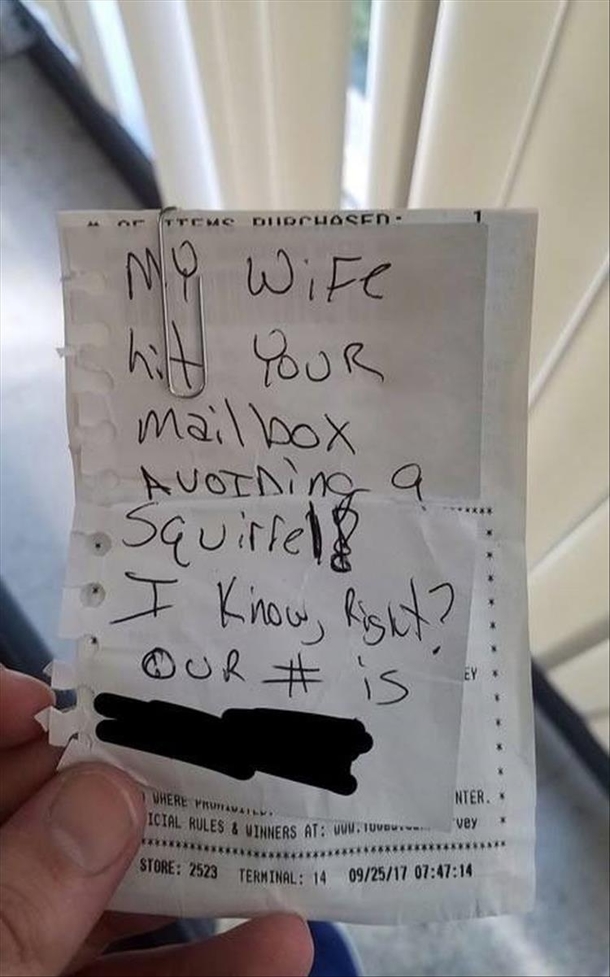 # OF ITEMS PURCHASED: 1
My WiFe
hit YOUR
mailbox
AVOIDing a
Squirrel!
I Know, Right?
OUR # is
EY *
WHERE PROHIBITED.
NTER. *
ICIAL RULES & WINNERS AT:
vey *
STORE: 2523 TERMINAL: 14 09/25/17 07:47:14